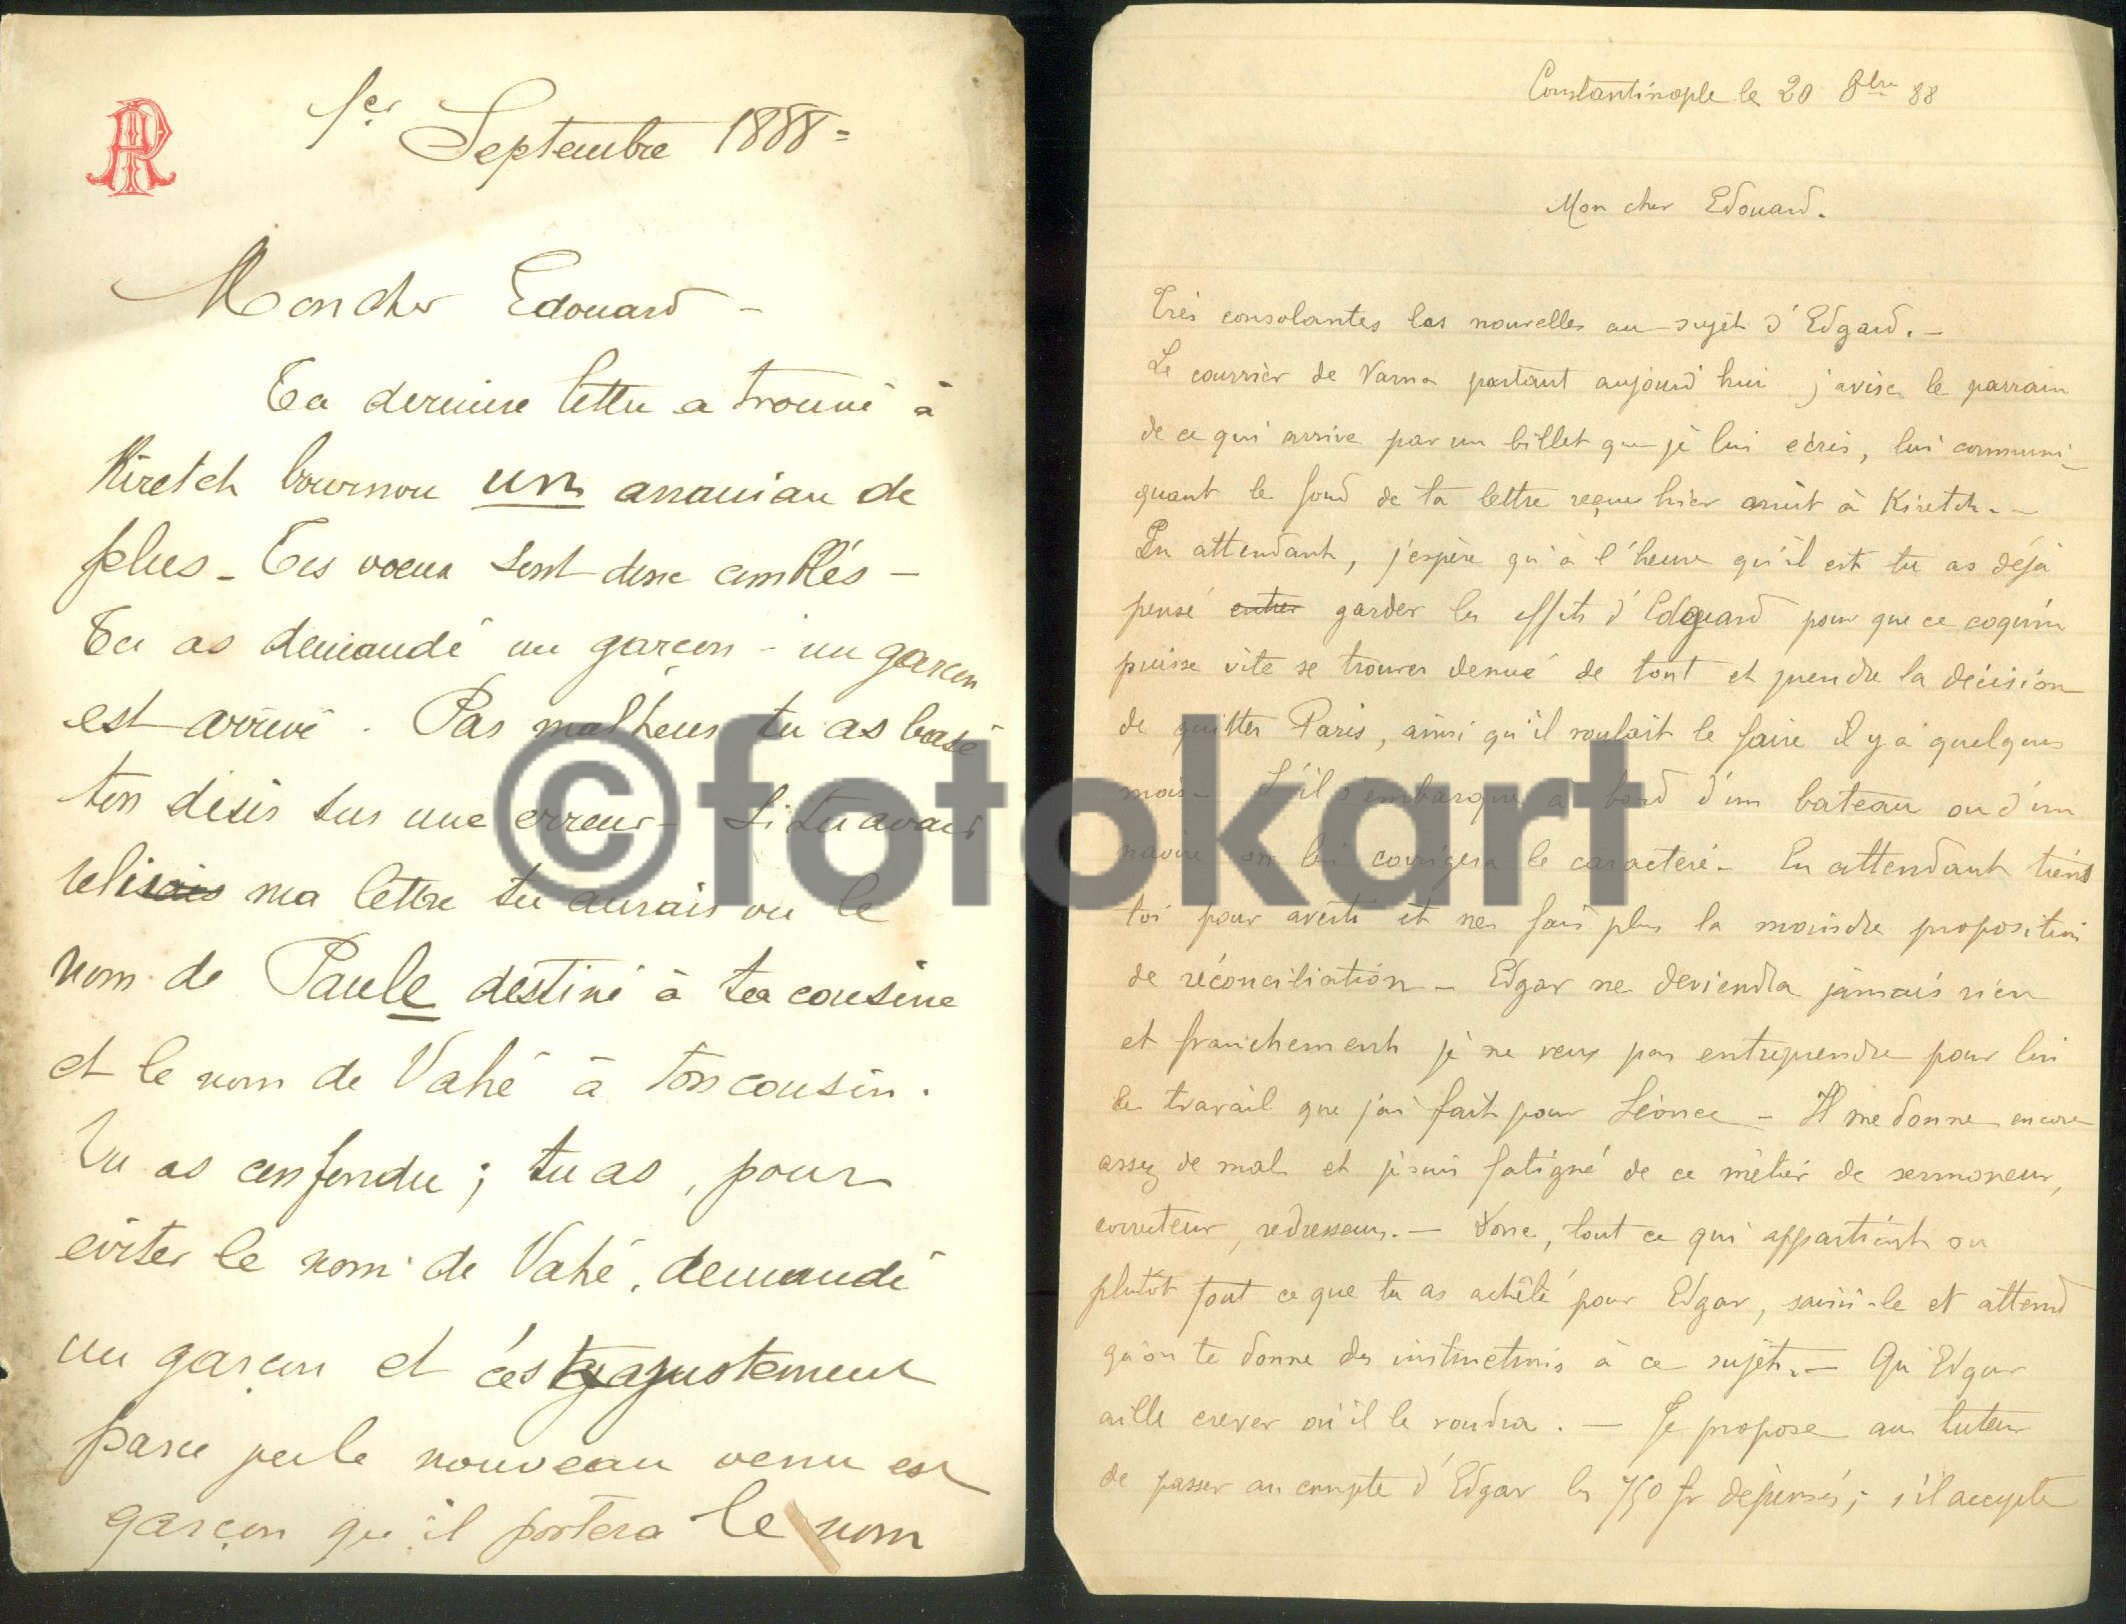 PR
1er Septembre 1888 =
Mon cher Edouard –
Ta derniere lettre a trouvé à
Kiretch bournou un ananian de
plus – Tes voeux sont donc comblés –
Tu as demandé un garçon – un garçon
est arrivé. Par malheur tu as basé
ton désir sur une erreur – Si tu avais
relisais ma lettre tu aurais vu le
nom de Paule destiné à ta cousine
et le nom de Vahé à ton cousin.
Tu as confondu ; tu as, pour
éviter le nom de Vahé, demandé
un garçon et c'est justement
parce que le nouveau venu est
garçon qu'il portera le nom
Constantinople le 20 8bre 88
Mon cher Edouard.
Très consolantes les nouvelles au sujet d'Edgard. –
Le courrier de Varna partant aujourd'hui j'avise le parrain
de ce qui arrive par un billet que je lui écris, lui communi-
quant le fond de ta lettre reçue hier à Kiretch. –
En attendant, j'espère qu'à l'heure qu'il est tu as déjà
pensé entrer garder les effets d'Edgard pour que ce coquin
puisse vite se trouver denué de tout et prendre la décision
de quitter Paris, ainsi qu'il voulait le faire il y a quelques
mois – S'il s'embarque à bord d'un bateau ou d'un
navire on lui corrigera le caractère – En attendant tiens
toi pour averti et ne fais plus la moindre proposition
de réconciliation – Edgar ne deviendra jamais rien
et franchement je ne veux pas entreprendre pour lui
le travail que j'ai fait pour Léonce – Il me donne encore
assez de mal et je suis fatigué de ce métier de sermoneur,
correcteur, redresseur. – Donc, tout ce qui appartient ou
plutôt tout ce que tu as acheté pour Edgar, saisi-le et attend
qu'on te donne des instructions à ce sujet. – Qu'Edgar
aille crever où il le voudra. – Je propose au tuteur
de passer au compte d'Edgar les 750 fr dépensés ; s'il accepte
©fotokart